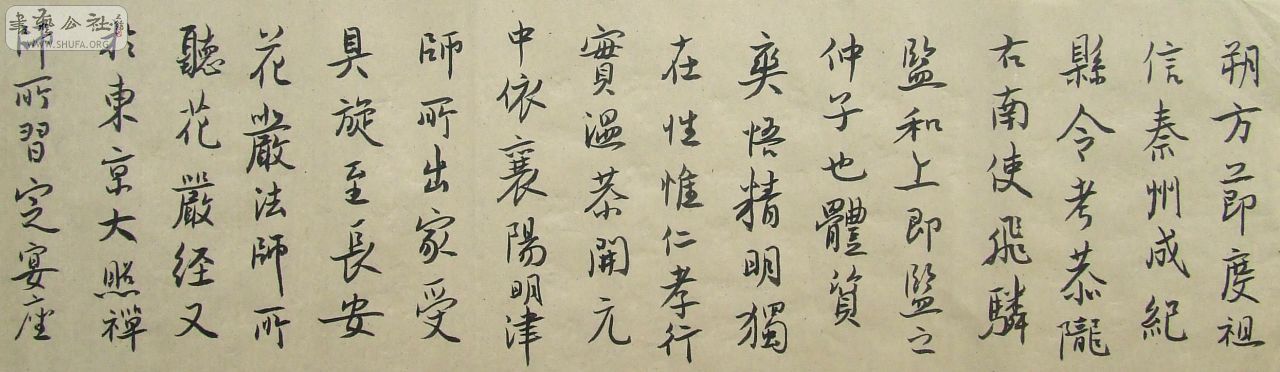 朔方节度祖
信秦州成紀
縣令考恭隴
右南使飛驎
監和上即監之
仲子也體質
爽悟精明獨
在性惟仁孝行
實溫恭開元
中依襄陽明津
師所出家受
具旋至長安
花嚴法師所
聽花嚴経又
於東京大照禪
師所習定宴座
書藝公社
WWW.SHUFA.ORG